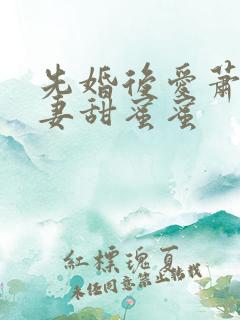 先婚後愛蕭
妻甜蜜蜜
紅標瑰夏
未经同意禁止转载